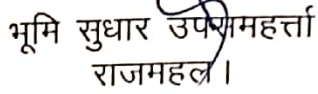 भूमि सुधार उपसमहर्त्ता
राजमहल।